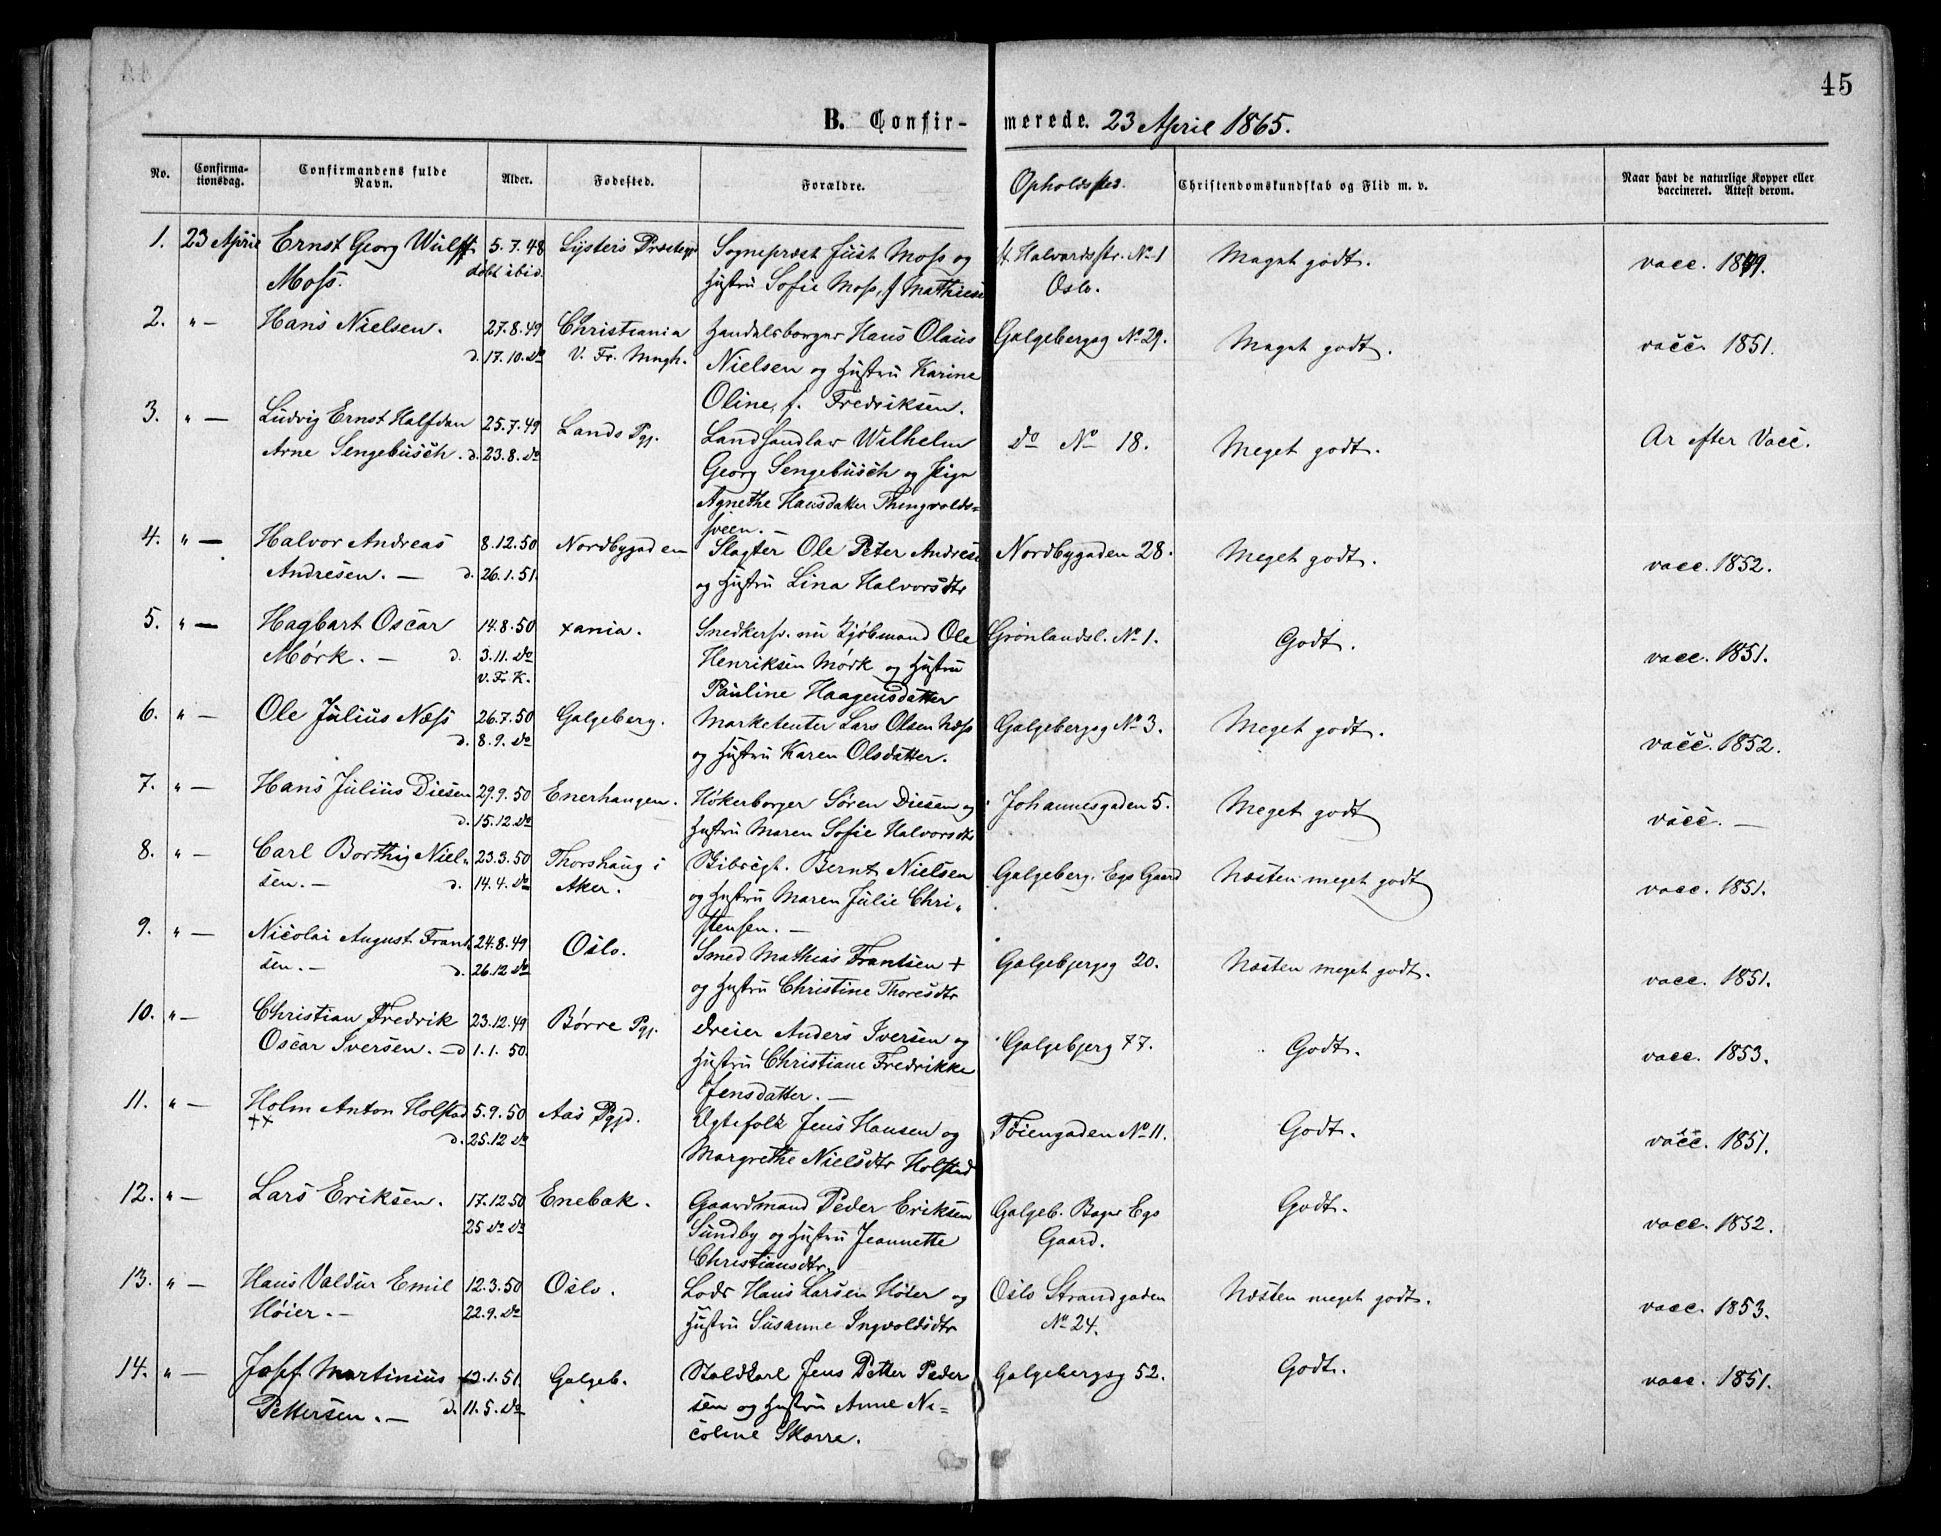 45
B. Confir- merede. 23 April 1865.
No. Confirma-tionsdag. Confirmandens fulde Navn. Alder. Fødested. Forældre. Opholdssted. Christendomskundskab og Flid m. v. Naar havt de naturlige Kopper eller vaccineret. Attest derom.
1. 23 April Ernst Georg Wulff 5.7.48 Lysters Sogneprest Just Moss og St. Halvardsstr. No 1 Meget godt. vacc. 1849.
Moss. døbt ibid. Hustru Sofie Moss, f. Mathiesen Oslo.
2. " — Hans Nielsen. 27.8.49 Christiania Handelsborger Hans Olaus Galgebergsg No 29. Meget godt. vacc. 1851.
d. 17.10. do V. Fr. Mngh. Nielsen og Hustru Karine
Oline, f. Fredriksen.
3. " — Ludvig Ernst Halfdan 25.7.49 Lands Pgj. Landhandler Wilhelm do No 18. Meget godt. Ar efter Vacc.
Arne Sengebusch. d. 23.8. do Georg Sengebusch og Pige
Agnethe Hansdatter Thingvolds=
sveen. —
4. " — Halvor Andreas 8.12.50 Nordbygaden Slagter Ole Peter Andresen Nordbygaden 28. Meget godt. vacc. 1852.
Andresen. — d. 26.1.51. og Hustru Lina Halvorsdtr
5. " — Hagbart Oscar 14.8.50 xania. Snedkersv. nu Kjøbmand Ole Grønlandsl. No 1. Godt. vacc. 1851.
Mørk. — d. 3.11. do Henriksen Mørk og Hustru
v. Fr. K. Pauline Haagensdatter
6. " — Ole Julius Næss 26.7.50 Galgeberg. Marketenter Lars Olsen Næss Galgebergsg No 3. Meget godt. vacc. 1852.
d. 8.9. do og Hustru Karen Olsdatter.
7. " — Hans Julius Diesen 29.9.50 Enerhaugen. Høkerborger Søren Diesen og Johannesgaden 5. Meget godt vacc. —
d. 15.12. do Hustru Maren Sofie Halvorsdtr
8. " — Carl Borthig Niel- 23.3.50 Thorshaug i Bernt Nielsen Galgeberg. Egs Gaard Næsten meget godt vacc. 1851.
sen. — d. 14.4. do Aker. og Hustru Maren Julie Chri-
stensen. —
9. " — Nicolai August Frant- 24.8.49 Oslo. Smed Mathias Frantsen + Galgebjergsg 20. Næsten meget godt. vacc. 1851.
sen. — d. 26.12 do og Hustru Christine Thoresdtr
10. " — Christian Fredrik 23.12.49 Børre Pgj. Dreier Anders Iversen og Galgebjerg 77. Godt. vacc. 1853.
Oscar Iversen. — d 1.1.50. Hustru Christiane Fredrikke
Jensdatter. —
11. " — Holm Anton Holstad 5.9.50 Aas Pgjd. Ægtefolk Jens Hansen og Tøiengaden No 11. Godt. vacc. 1851.
++ d. 25.12 do Margrethe Nielsdtr Holstad
12. " — Lars Eriksen. 17.12.50 Enebak. Gaardmand Peder Eriksen Galgeb. Bager Egs Godt. vacc. 1852.
25 do do Sundby og Hustru Jeannette Gaard.
Christiansdtr.
13. " — Hans Valdur Emil 12.3.50 Oslo. Lods Hans Larsen Høier og Oslo Strandgaden Næsten meget godt. vacc. 1853.
Høier. — 22.9. do Hustru Susanne Ingvoldsdtr No 24.
14. " — Josef Martinius 13.1.51. Galgeb. Staldkarl Jens Petter Peder Galgebergsg 52. Godt. vacc. 1851.
Pettersen. — d. 11.5. do sen og Hustru Anne Ni=
coline Skarre.